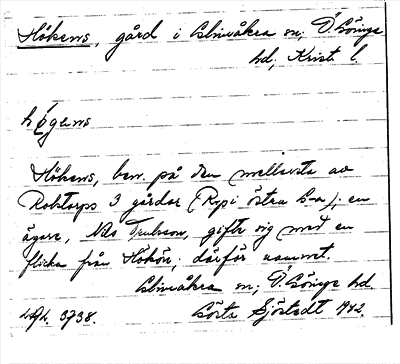 Hökens, gård i Glimåkra sn; Ö. Göinge
hd, Krist. l.
högens
Hökens, ben. på den mellersta av
Robtorps 3 gårdar (Rop i östra G-a); en
ägare, Nils Trulsson, gifte sig med en
flicka från Hökön; därför namnet.
Glimåkra sn; Ö. Göinge hd.
3738. Gösta Sjöstedt 1942.